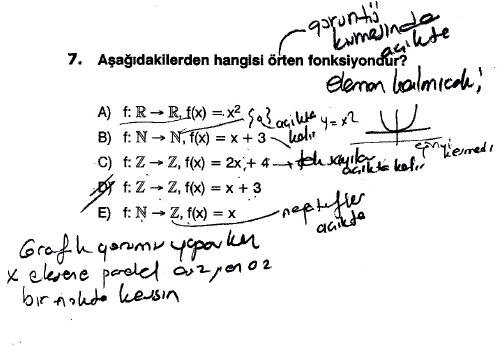 görüntü
kümesinde
açıkta
7. Aşağıdakilerden hangisi örten fonksiyondur?
eleman kalmıcak!
A) f: ℝ → ℝ, f(x) = x² y = x²
B) f: ℕ → ℕ, f(x) = x + 3 açıkta kalır
C) f: ℤ → ℤ, f(x) = 2x + 4 → tek sayılar açıkta kalır
D) f: ℤ → ℤ, f(x) = x + 3
E) f: ℕ → ℤ, f(x) = x negatifler açıkta
Grafik yorumu yaparken
x eksene paralel en az
bir noktada kessin